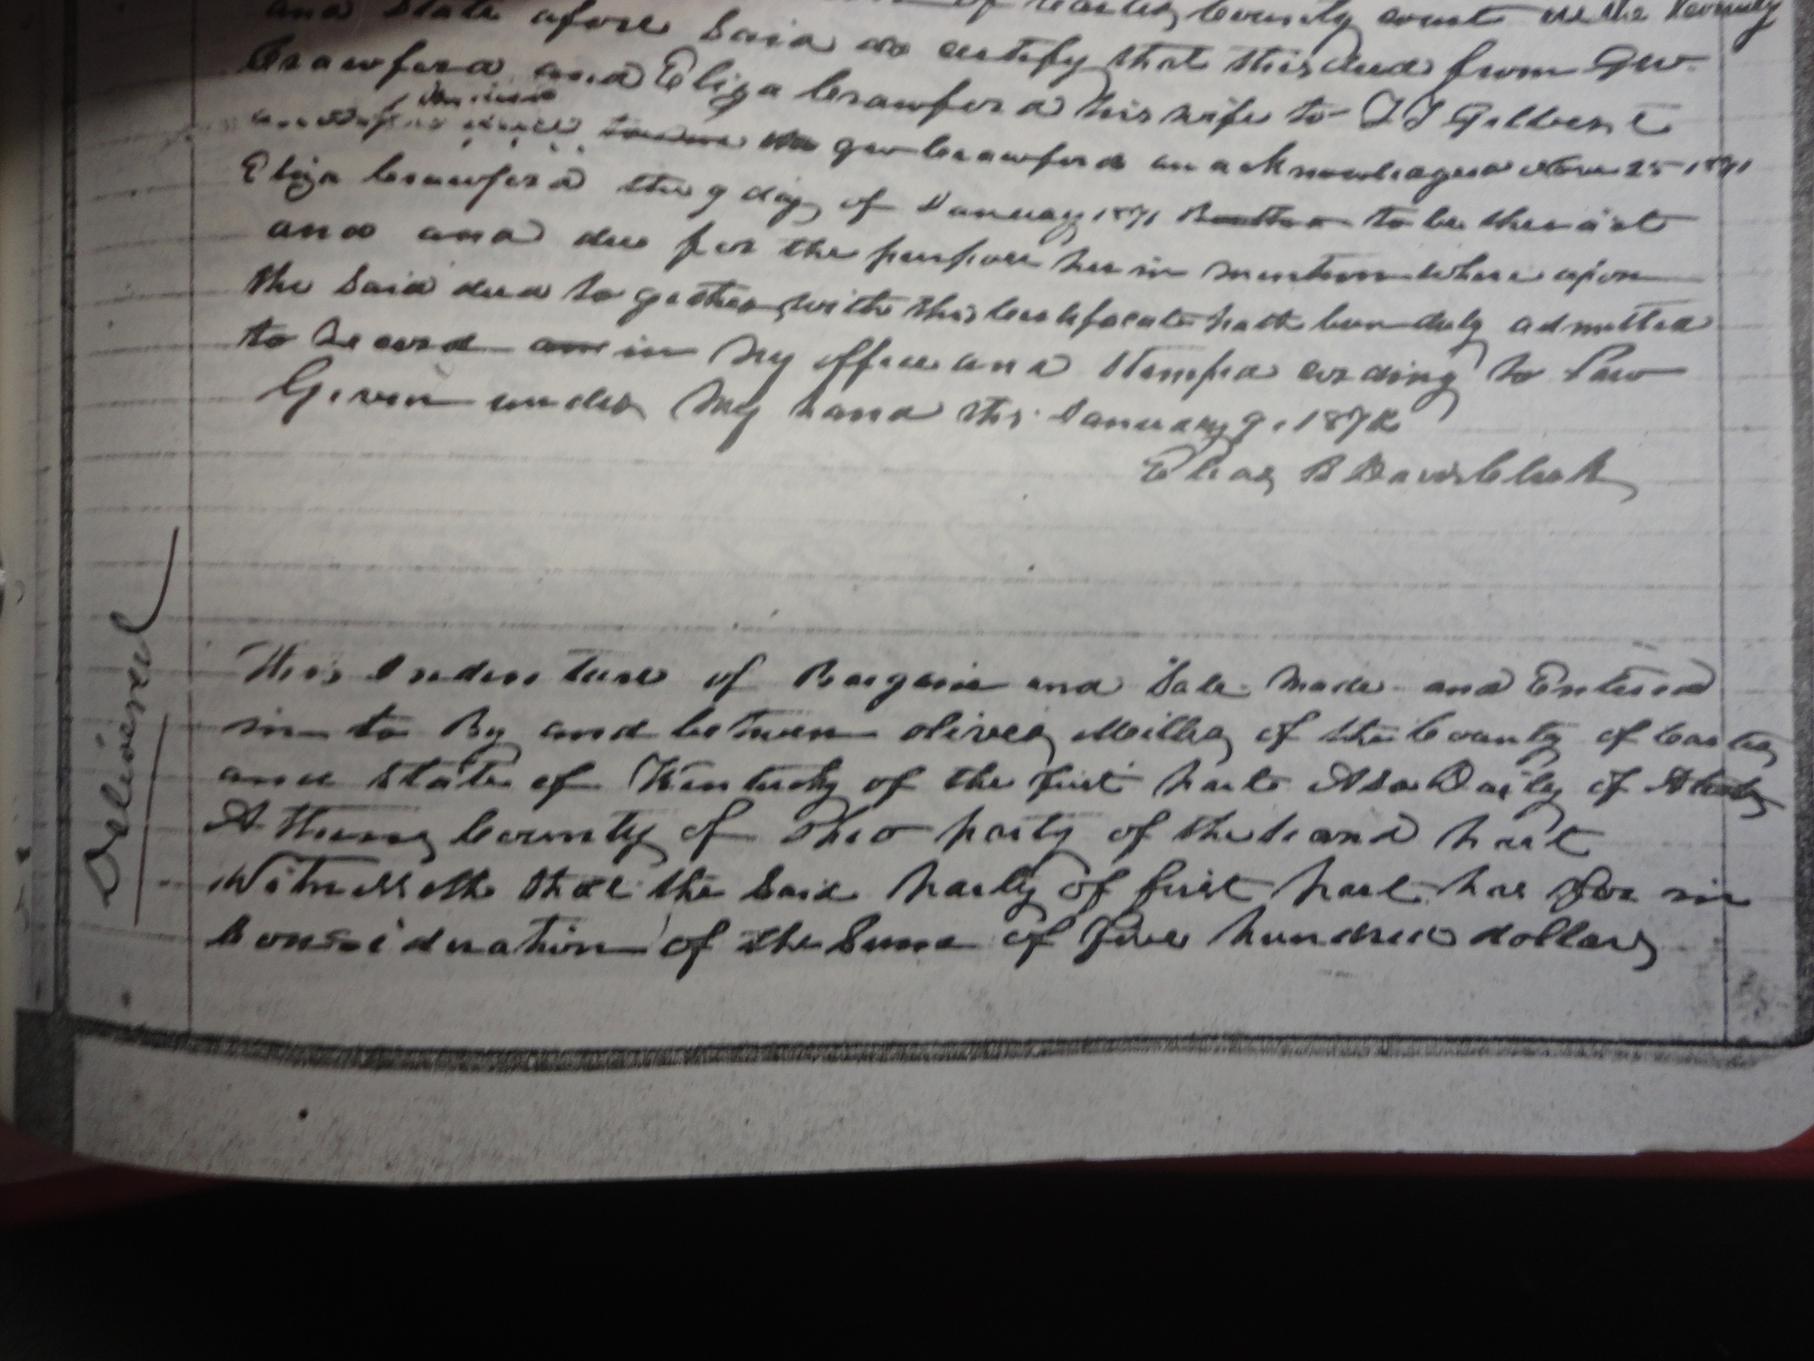 of Carter County court in the County
and State afore Said do certify that this deed from GW
Crawford and Eliza Crawford his wife to T J Gilbert
was GW Crawford an acknowledged Nov 25 1871
Eliza Crawford the 9 day of January 1871 to be ther act
and and dee for the purpose her in mention where upon
the Said deed to gether with this Certifocate hath been duly admitted
to Record in my office and Stampd cording to Law
Given under my hand this January 9, 1872
Elias B Davis Clerk
Delivered
This Indenture of Bargain and Sale made and Entered
in to By and between oliver Miller of the County of Carter
and State of Kentucky of the first part Asa Daily of
Athens County of Ohio party of the Second part
Witnesseth that the Said party of first part has for in
Considuration of the Sume of five hundred dollars